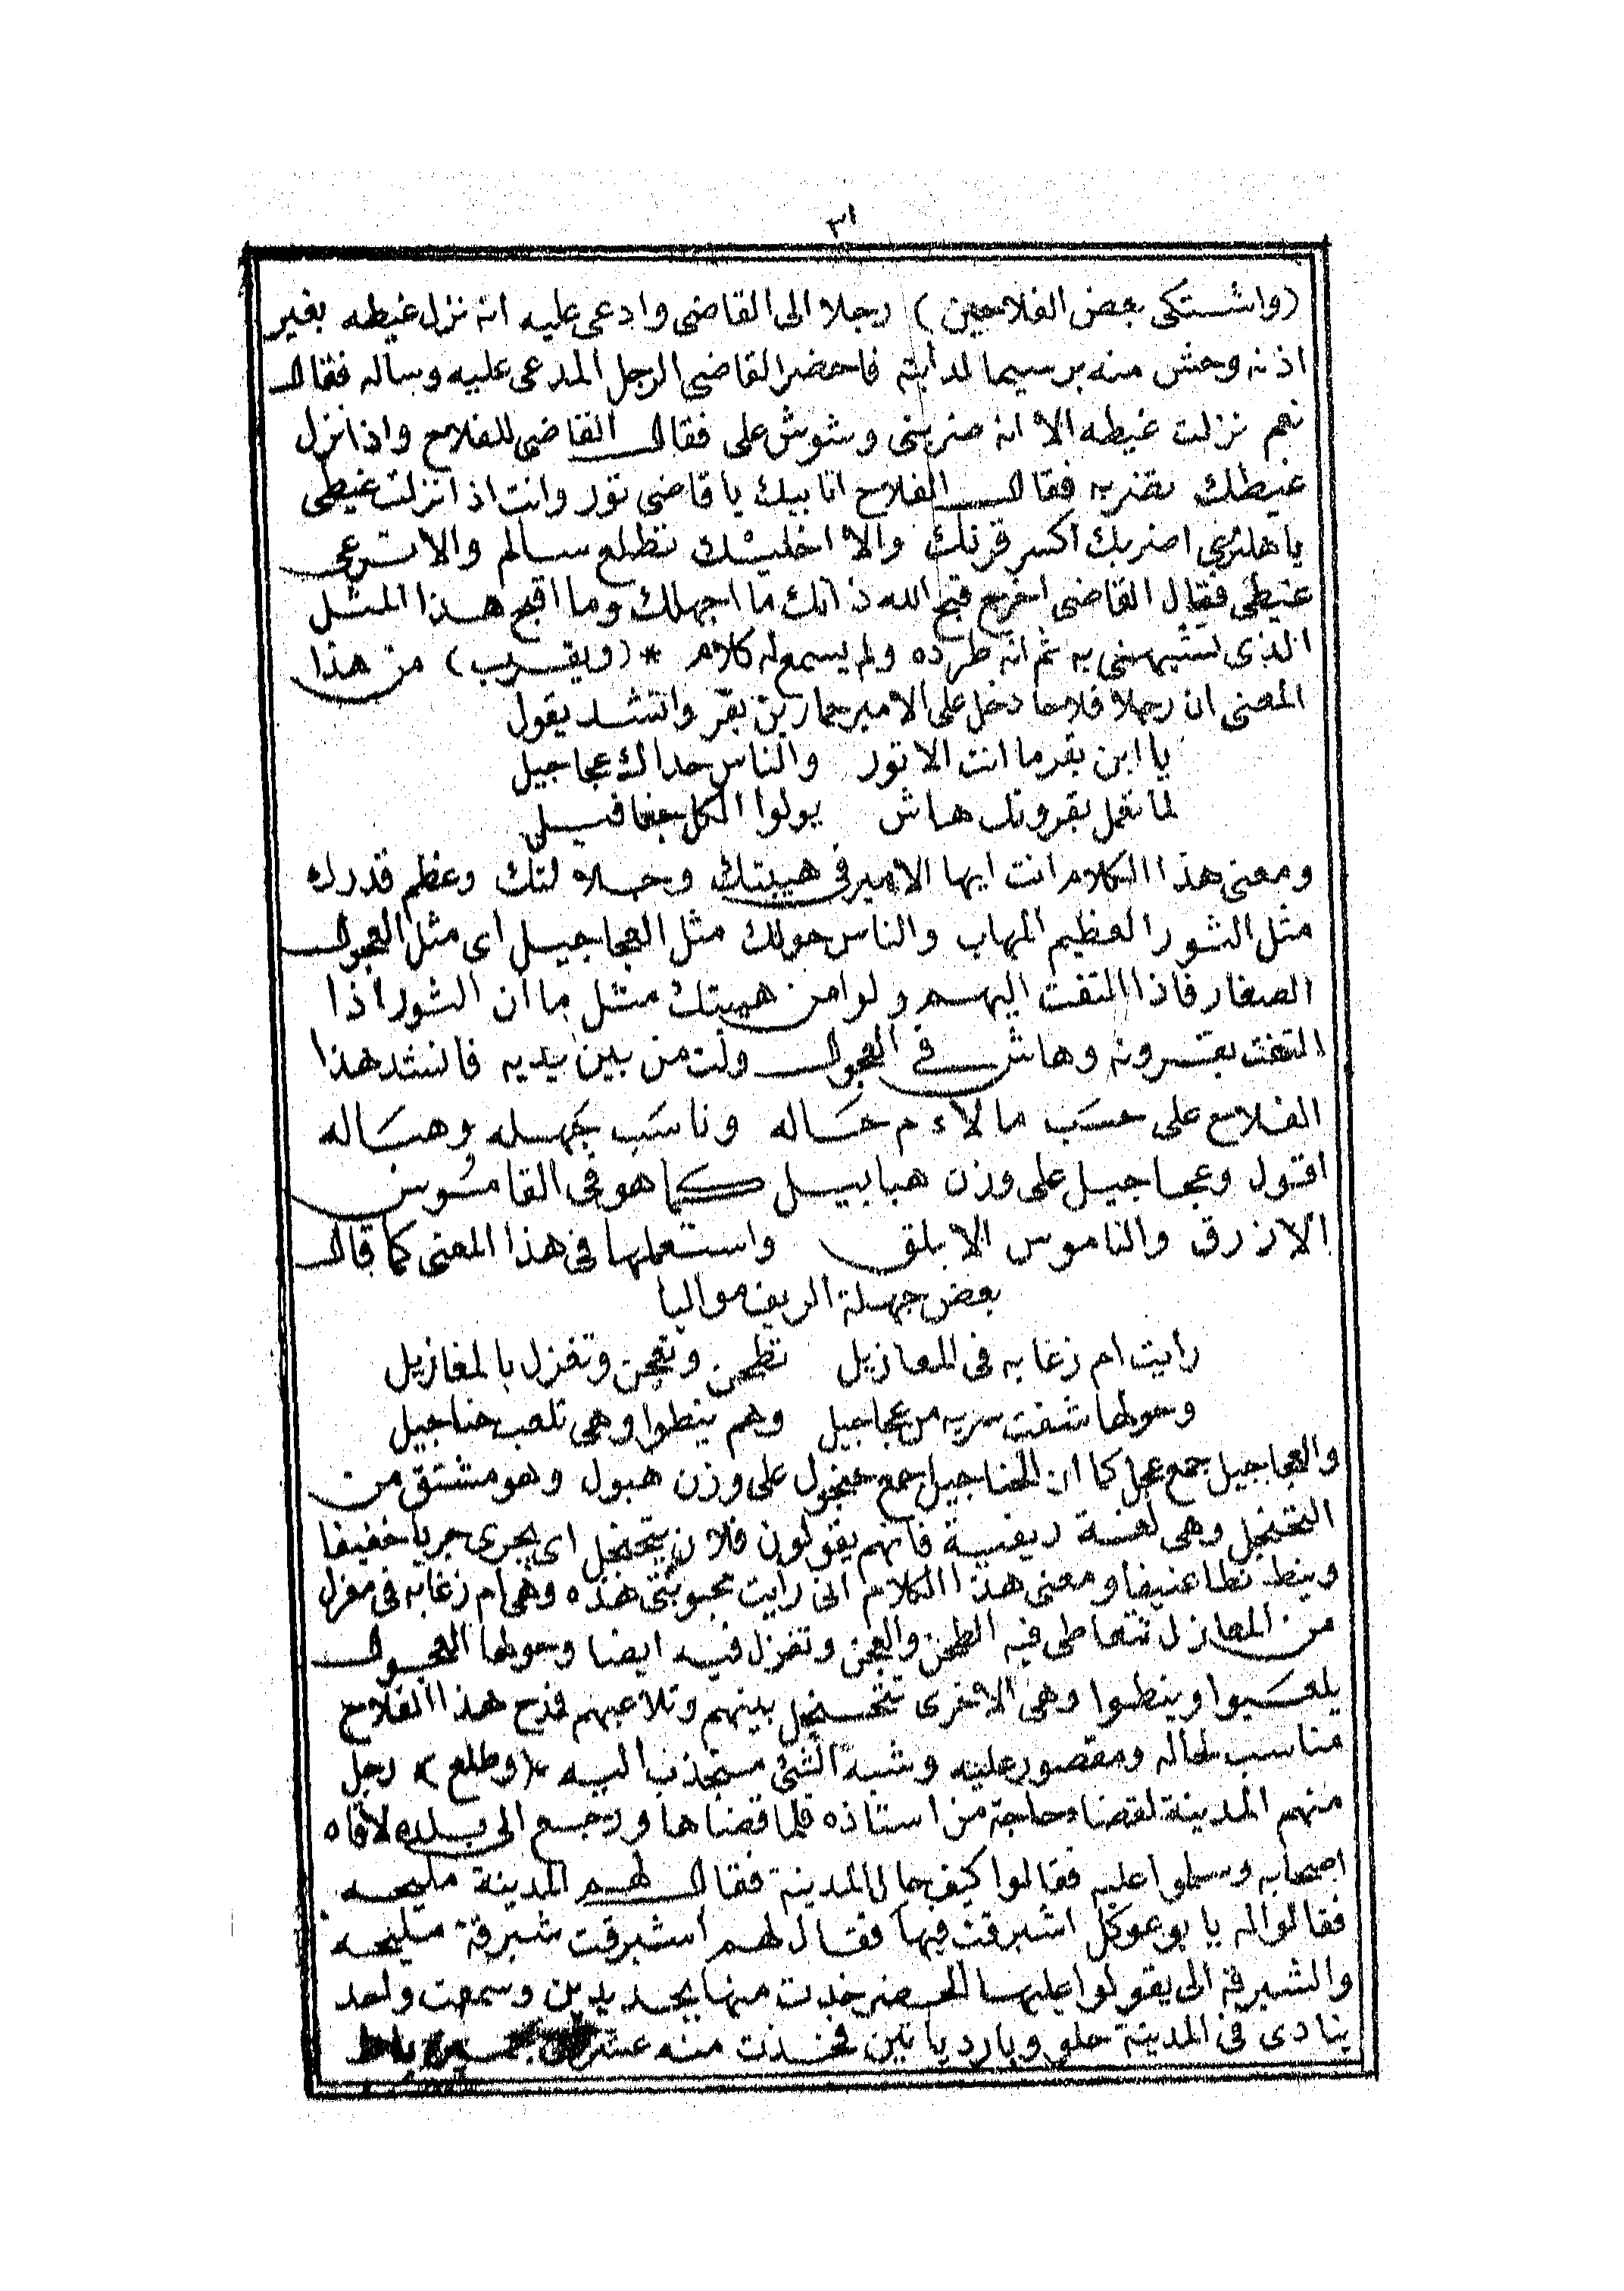 ٣١
(واشتكى بعض الفلاحين) رجلا الى القاضى وادعى عليه انه نزل غيطه بغير
اذنه وحش منه برسيما لدابته فاحضر القاضى الرجل المدعى عليه وساله فقال
نعم نزلت غيطه الا انه ضربنى وشوش على فقال القاضى للفلاح واذا نزل
غيطك تضربه فقال الفلاح انا بيك يا قاضى تور وانت اذا نزلت غيطى
يا هلترى اضربك اكسر قرنك والا اخليك تطلع سالم والا ترعى
غيطى فقال القاضى اخرج قبح الله ذاتك ما اجهلك وما اقبح هذا المثل
الذى تشبهنى به ثم انه طرده ولم يسمع له كلام * (ويقرب) من هذا
المعنى ان رجلا فلاحا دخل على الامير حمار بن بقر وانشد يقول
يا ابن بقر ما انت الا تور والناس حداك عجاجيل
لما تعمل بقرونك هاش يولوا الكل جفافيل
ومعنى هذا الكلام انت ايها الامير فى هيبتك وجلالتك وعظم قدرك
مثل الثور العظيم المهاب والناس حولك مثل العجاجيل اى مثل العجول
الصغار فاذا التفت اليهم ولوا من هيبتك مثل ما ان الثور اذا
التفت بقرونه وهاش فى العجول ولت من بين يديه فانشد هذا
الفلاح على حسب ما لاءم حاله وناسب جهله وهباله
اقول وعجاجيل على وزن هبابيل كما هو فى القاموس
الازرق والناموس الابلق واستعملها فى هذا المعنى كما قال
بعض جهلة الريف مواليا
رايت ام زغابه فى المعازيل تطحن وتعجن وتغزل بالمغازيل
وحولها شفت سربه من عجاجيل وهم ينطوا وهى تلعب حناجيل
والعجاجيل جمع عجل كما ان الحناجيل جمع حنجول على وزن هبول وهو مشتق من
التحنجل وهى لغة ريفية فانهم يقولون فلان يتحنجل اى يجرى جريا خفيفا
وينط نطا عنيفا ومعنى هذا الكلام انى رايت محبوبتى هذه وهى ام زغابه فى معزل
من المعازل تتعاطى فيه الطحن والعجن وتغزل فيه ايضا وحولها العجول
يلعبوا وينطوا وهى الاخرى تتحنجل بينهم وتلاعبهم فمدح هذا الفلاح
مناسب لحاله ومقصور عليه وشبه الشئ منجذب اليه *(وطلع) رجل
منهم المدينة لقضاء حاجة من استاذه فلما قضاها ورجع الى بلده لاقاه
اصحابه وسلموا عليه فقالوا كيف حال المدينة فقال لهم المدينة مليحه
فقالوا له يا بو عوكل اشبرقت فيها فقال لهم اشبرقت شبرقة مليحه
والشبرقة الى يقولوا عليها الحضر خدت منها بجديدين وسمعت واحد
ينادى فى المدينة حلو وبارد يا تين فخدت منه عشر